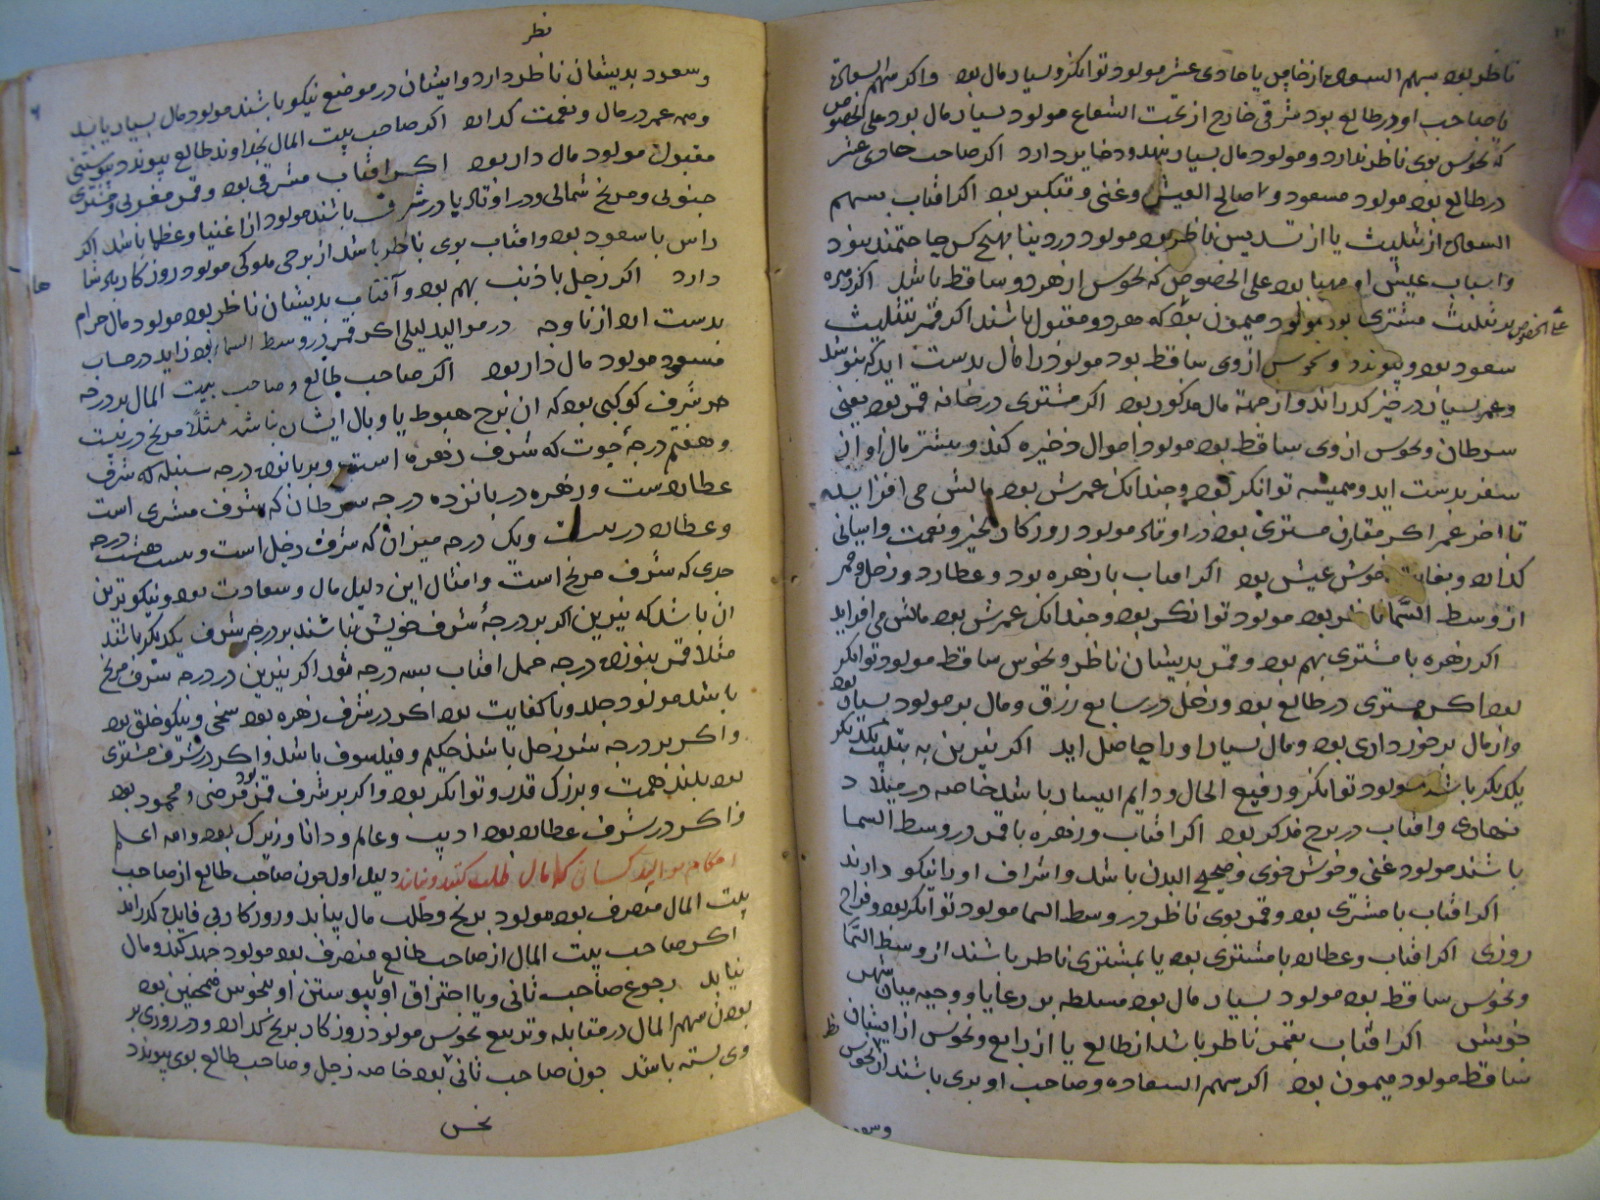 ناظر بود بسهم السعاده از خامس یا حادی عشر مولود توانکر و بسیار مال بود واکر سهم السعاده
یا صاحب او در طالع بود مشرقی خارج از تحت الشعاع مولود بسیار مال بود علی الخصوص
که نحوس بوی ناظر ندارد و مولود مال بسیار نهد و دخایر دارد اکر صاحب حادی عشر
در طالع بود مولود مسعود و صالح العیش وغنی و متکبر بود اکر افتاب بسهم
السعاده از تثلیث یا از تسدیس ناظر بود مولود در دنیا بهیچ کس حاجتمند نبود
واسباب عیش او مهیا بود علی الخصوص که نحوس از هر دو ساقط باشد اکر زهره
بر تثلیث مشتری بود مولود میمون بود که هر دو مقبول باشند اکر قمر بتثلیث
علی الخصوص
سعود بود و پیوندد و نحوس از وی ساقط بود مولود را مال بدست اید که بنوشد
وعمر بسیار در خیر کدراند و از جهة مال مذکور بود اکر مشتری در خانه قمر بود یعنی
سرطان و نحوس از وی ساقط بود مولود اموال ذخیره کند و بیشتر مال او از
سفر بدست اید و همیشه توانکر بود و چندانک عمرش بود مالش می افزاید
تا اخر عمر اکر مقارن مشتری بود در اوتاد مولود روزکار بخیر و نعمت واسانی
کدارد و بغایت خوش عیش بود اکر افتاب با زهره بود و عطارد و زحل و قمر
از وسط السما ناظر بود مولود توانکر بود و چندانک عمرش بود مالش می افزاید
اکر زهره با مشتری بهم بود و قمر بدیشان ناظر و نحوس ساقط مولود توانکر
بود اکر مشتری در طالع بود و زحل در سابع رزق و مال بر مولود بسیار بود
واز مال برخورداری بود و مال بسیار او را حاصل اید اکر نیرین به تثلیث یکدیکر
یکدیکر باشند مولود توانکر و رفیع الحال و دایم الیسار باشد خاصه در میلاد
نهاری و افتاب در برج مذکر بود اکر افتاب و زهره با قمر در وسط السما
باشند مولود غنی و خوش خوی و صحیح البدن باشد و اشراف او را نیکو دارند
اکر افتاب با مشتری بود و قمر بوی ناظر در وسط السما مولود توانکر بود و فراخ
روزی اکر افتاب و عطارد با مشتری بود یا بمشتری ناظر باشند از وسط السما
ونحوس ساقط بود مولود بسیار مال بود مسلط بر رعایا و وجیه میان شهر
خویش اکر افتاب بقمر ناظر باشد از طالع یا از رابع و نحوس از ایشان
ساقط مولود میمون بود اکر سهم السعاده و صاحب او بری باشند از نحوس
وسعود
نظر
وسعود بدیشان ناظر دارد و ایشان در موضع نیکو باشند مولود مال بسیار یابد
وهمه عمر در مال و نعمت کدارد اکر صاحب بیت المال بخداوند طالع پیوندد پیوستنی
مقبول مولود مال دار بود اکر افتاب مشرقی بود و قمر مغربی و مشتری
جنوبی و مریخ شمالی و در اوتاد یا در شرف باشند مولود از اغنیا و عظما باشد اکر
راس با سعود بود و افتاب بوی ناظر باشد از برجی ملوکی مولود روزکار بپادشاها
دارد اکر زحل با ذنب بهم بود و آفتاب بدیشان ناظر بود مولود مال حرام
بدست ارد از ناوجه در موالید لیلی اکر قمر در وسط السماء بود زاید در حساب
مسعود مولود مال دار بود اکر صاحب طالع و صاحب بیت المال بر درجه
شرف کوکبی بود که ان برج هبوط یا وبال ایشان باشد مثلا مریخ در بیست
وهفتم درجهٔ حوت که شرف زهره است و بر پانزده درجه سنبله که شرف
عطاردست و زهره در پانزده درجه سرطان که شرف مشتری است
وعطارد در بیست و یک درجه میزان که شرف زحل است و بیست هشت درجه
جدی که شرف مریخ است و امثال این دلیل مال و سعادت بود و نیکوترین
ان باشد که نیرین اکر بر درجهٔ شرف خویش نباشند بر درجه شرف یکدیکر باشند
مثلا قمر بنوزده درجه حمل افتاب بسه درجه ثور اکر نیرین در درجه شرف مریخ
باشد مولود جلد و با کفایت بود اکر در شرف زهره بود سخی و نیکو خلق بود
واکر بر درجه شرف زحل باشد حکیم و فیلسوف باشد و اکر در شرف مشتری
بود بلند همت و بزرک قدر و توانکر بود و اکر بر شرف قمر بود مرضی و محمود بود
واکر در شرف عطارد بود ادیب و عالم و دانا و زیرک بود والله اعلم
احکام موالید کسانی که مال طلب کنند و نیابند دلیل اول چون صاحب طالع از صاحب
بیت المال منصرف بود مولود برنج و طلب مال بیابد و روزکار بی فایده کدراند
اکر صاحب بیت المال از صاحب طالع منصرف بود مولود جهد کند و مال
نیابد رجوع صاحب ثانی و یا احتراق او یا پیوستن او بنحوس همچنین بود
بودن سهم المال در مقابله و تربیع نحوس مولود روزکار برنج کدارد و در روزی بر
وی بسته باشد چون صاحب ثانی بود خاصه زحل و صاحب طالع بوی پیوندد
نحس